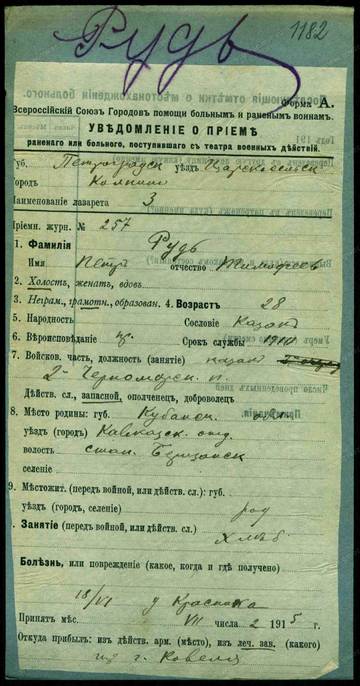 1182
Рудь
Форма А.
Всероссійскій Союзъ Городовъ помощи больнымъ и раненымъ воинамъ.
УВѢДОМЛЕНІЕ О ПРІЕМѢ
раненаго или больного, поступившаго съ театра военныхъ дѣйствій.
Губ. Петроградск уѣздъ Царскосельск
Городъ Колпино
Наименованіе лазарета 3
Пріемн. журн. № 257
1. Фамилія Рудь
Имя Петръ отчество Тимофеев
2. Холостъ, женатъ, вдовъ
3. Неграм., грамотн., образован. 4. Возрастъ 28
5. Народность Сословіе Казакъ
6. Вѣроисповѣданіе Срокъ службы 1910
7. Войсков. часть, должность (занятіе) казак
2- Черноморск. п.
Дѣйств. сл., запасной, ополченецъ, доброволецъ
8. Мѣсто родины: губ. Кубанск.
уѣздъ (городъ) Кавказск. отд.
волость стан.
селеніе
9. Мѣстожит. (передъ войной, или дѣйств. сл.): губ.
уѣздъ (городъ, селеніе) род
Занятіе (передъ войной, или дѣйств. сл.)
Хлѣб.
Болѣзнь, или поврежденіе (какое, когда и гдѣ получено)
18/VI у
Принятъ мѣс. VII числа 2 1915 г.
Откуда прибылъ: изъ дѣйств. арм. (мѣсто), изъ леч. зав. (какого)
из г. Ковеля